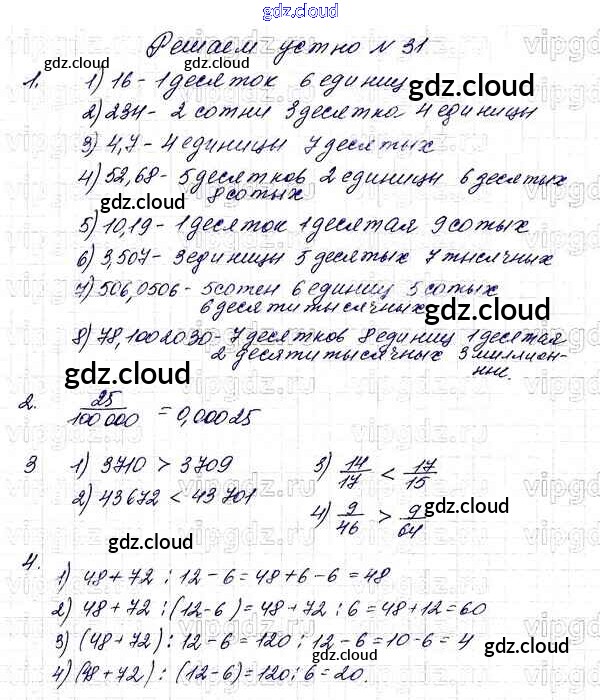 gdz.cloud
Решаем устно N 31
gdz.cloud gdz.cloud
1. 1) 16 - 1 десяток 6 единиц
gdz.cloud
2) 234 - 2 сотни 3 десятка 4 единицы
3) 4,7 - 4 единицы 7 десятых
4) 52,68 - 5 десятков 2 единицы 6 десятых
8 сотых
gdz.cloud
5) 10,19 - 1 десяток 1 десятая 9 сотых
6) 3,507 - 3 единицы 5 десятых 7 тысячных
7) 506,0506 - 5 сотен 6 единиц 5 сотых
6 десятитысячных
gdz.cloud
8) 78,1002030 - 7 десятков 8 единиц 1 десятая
2 десятитысячных 3 миллион-
ные.
gdz.cloud
2. 25/100 000 = 0,00025
gdz.cloud
3 1) 3710 > 3709 3) 14/17 < 17/15
2) 43672 < 43701 4) 9/46 > 9/64
gdz.cloud
gdz.cloud
4.
1) 48 + 72 : 12 - 6 = 48 + 6 - 6 = 48
2) 48 + 72 : (12 - 6) = 48 + 72 : 6 = 48 + 12 = 60
3) (48 + 72) : 12 - 6 = 120 : 12 - 6 = 10 - 6 = 4
gdz.cloud
4) (48 + 72) : (12 - 6) = 120 : 6 = 20.
gdz.cloud